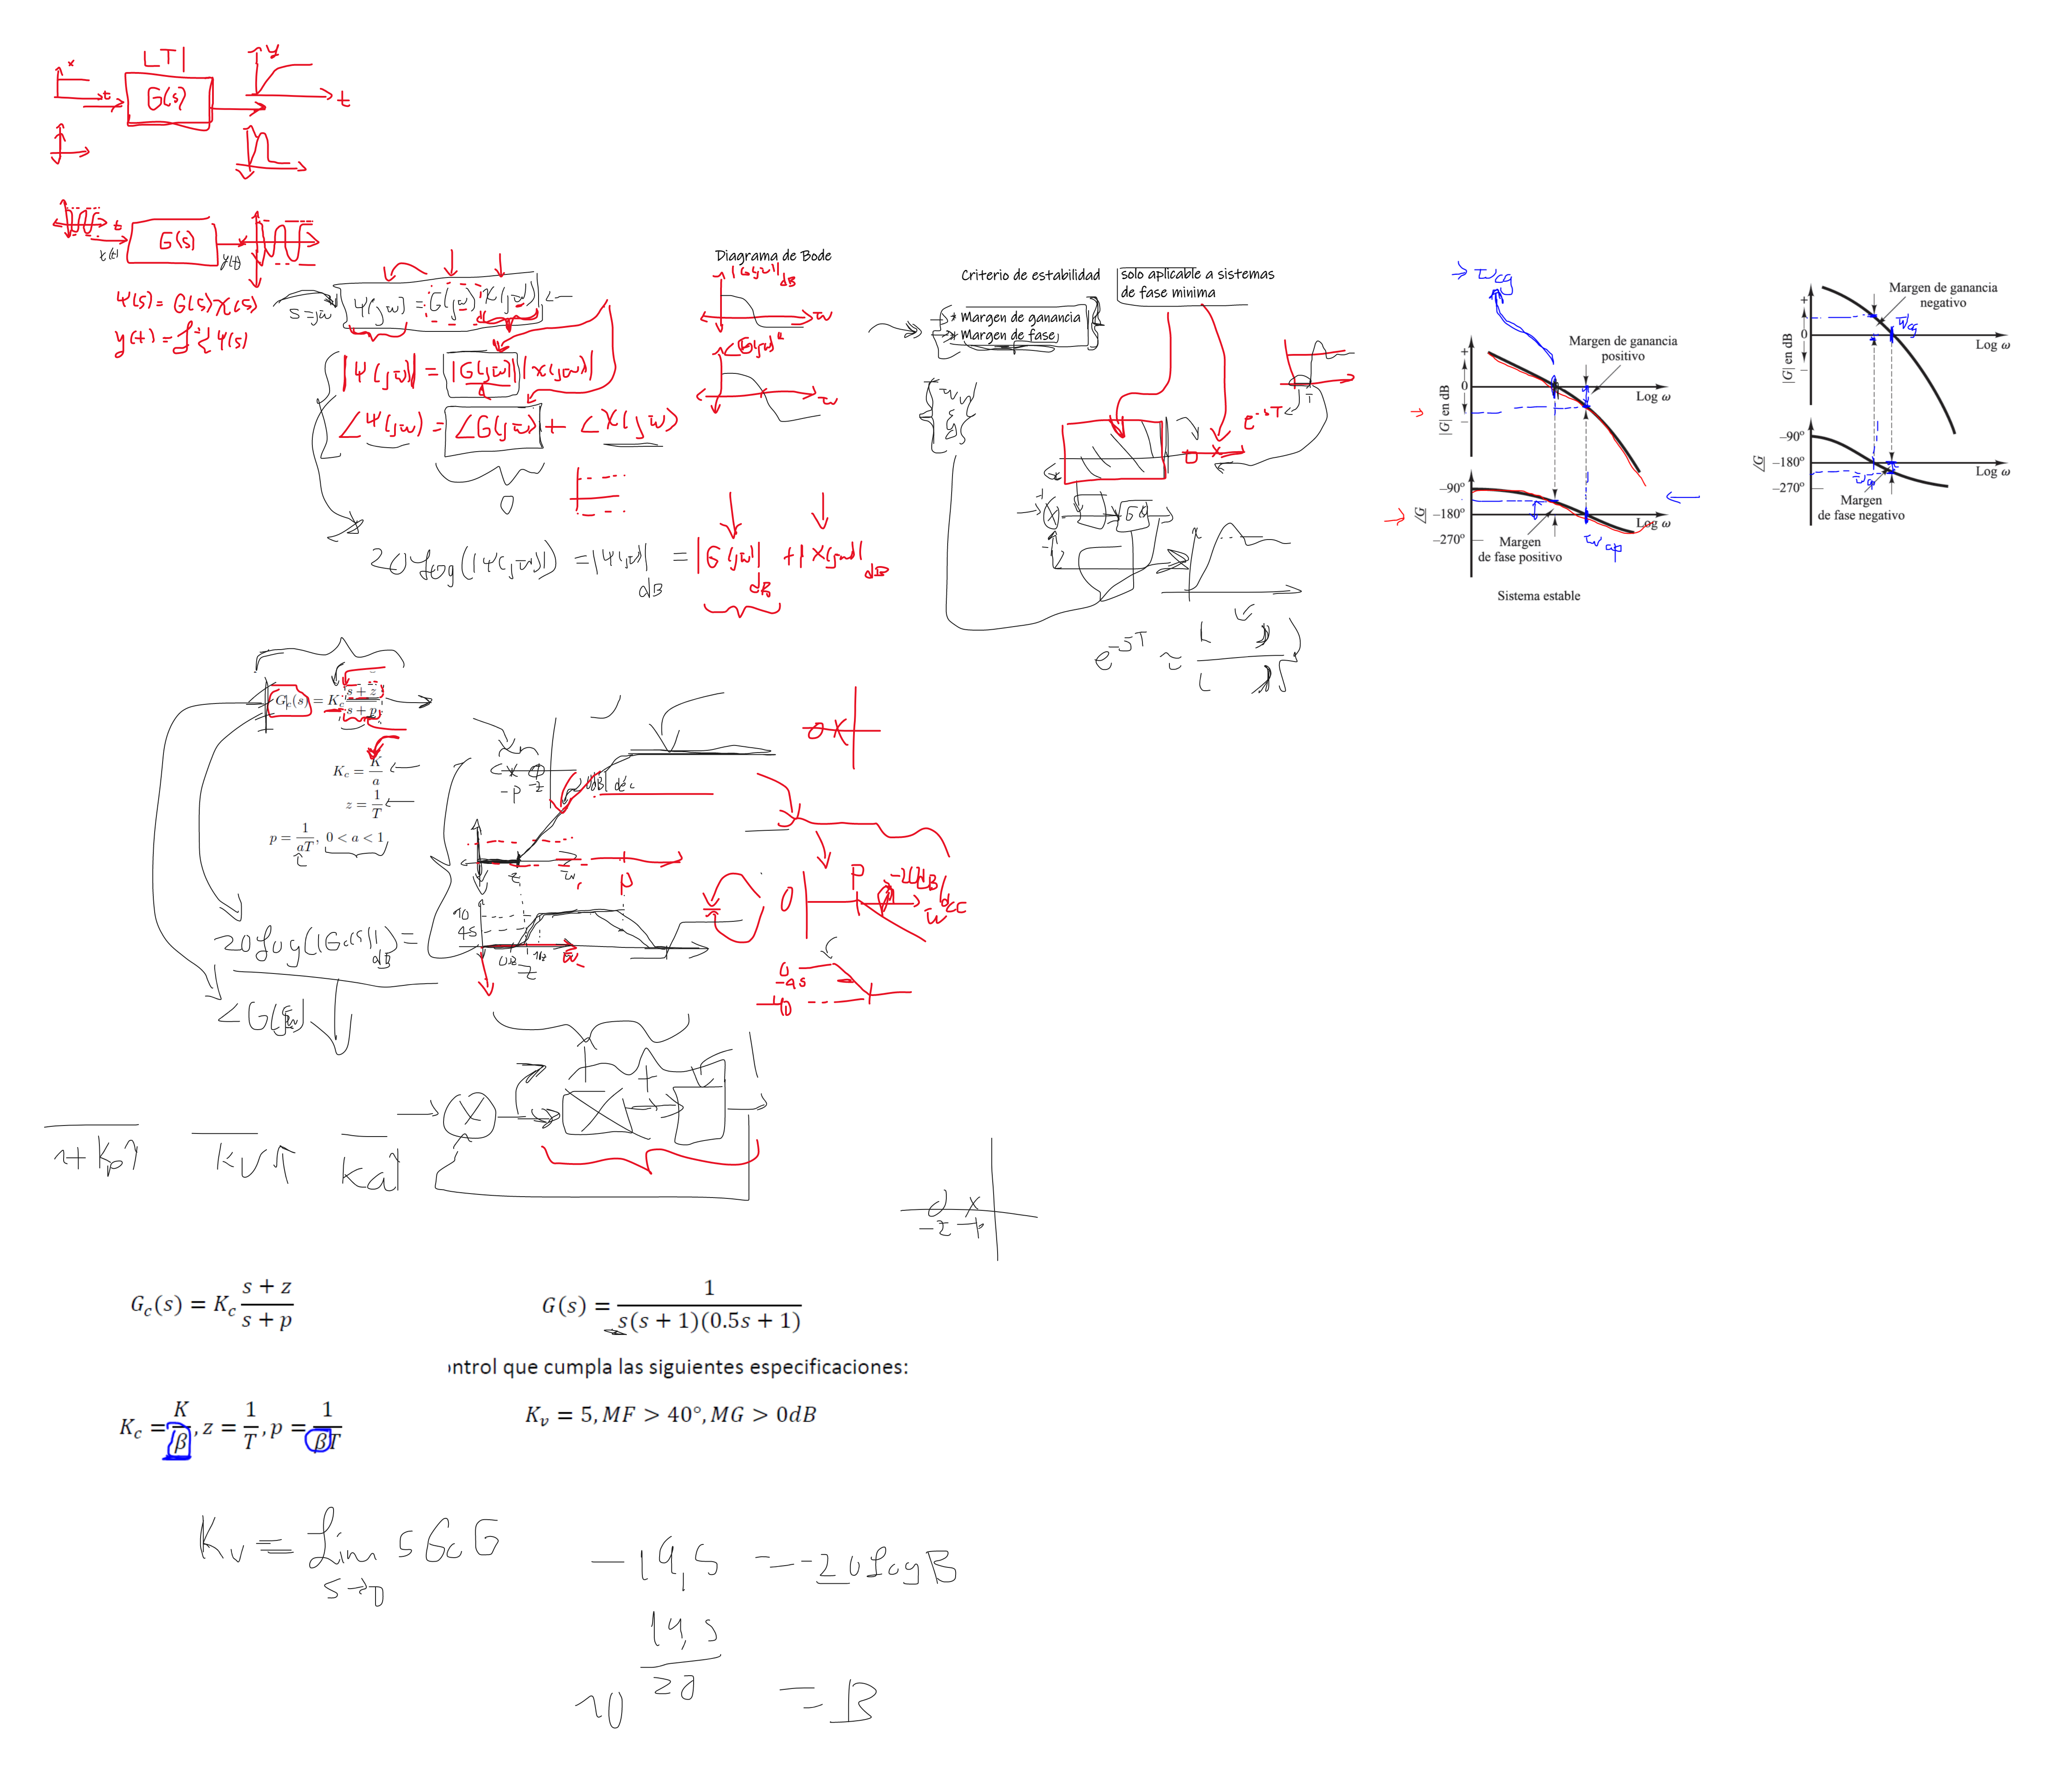 LTI
x
y
t
G(s)
t
t
G(s)
x(t)
y(t)
Y(s) = G(s)X(s)
s=jw
Y(jw) = G(jw) X(jw)
|Y(jw)| = |G(jw)| |X(jw)|
∠Y(jw) = ∠G(jw) + ∠X(jw)
0
20 log(|Y(jw)|) = |Y(jw)|dB = |G(jw)|dB + |X(jw)|dB
Diagrama de Bode
|G(jw)|dB
w
∠G(jw)°
w
Criterio de estabilidad
solo aplicable a sistemas
de fase minima
* Margen de ganancia
* Margen de fase
e^-sT
T
e^-sT ≈
wcg
Margen de ganancia
positivo
|G| en dB
+
0
−
Log ω
−90°
∠G −180°
−270°
Log ω
wcp
Margen
de fase positivo
Sistema estable
Margen de ganancia
negativo
|G| en dB
+
0
−
wcg
Log ω
−90°
∠G −180°
−270°
Log ω
wcp
Margen
de fase negativo
Gc(s) = Kc (s + z)/(s + p)
Kc = K/a
z = 1/T
p = 1/(aT), 0 < a < 1
-p -z
dB/dec
z
w
p
90
45
z
w
0
p
-20dB/dec
w
0
-45
-90
20 log(|Gc(s)|)dB =
∠G(jw)
1+Kp↑
Kv↑
Ka↑
-z -p
Gc(s) = Kc (s + z)/(s + p)
G(s) = 1/(s(s + 1)(0.5s + 1))
ntrol que cumpla las siguientes especificaciones:
Kc = K/β, z = 1/T, p = 1/(βT)
Kv = 5, MF > 40°, MG > 0dB
Kv = Lim s→0 s Gc G
-19,5 = -20 log B
10^(19,5/20) = B